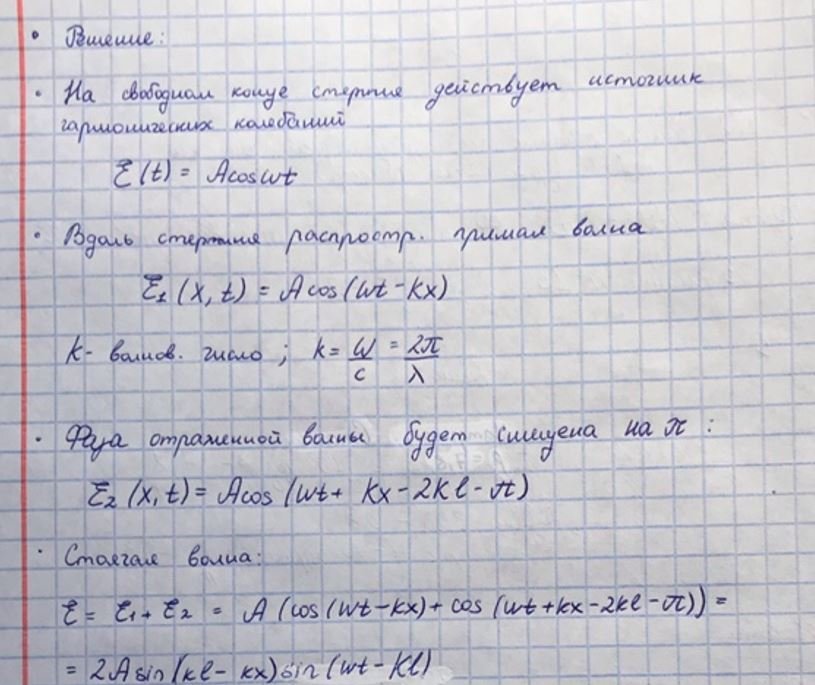 • Решение:
• На свободном конце стержня действует источник
гармонических колебаний
ξ(t) = Acosωt
• Вдоль стержня распростр. прямая волна
ξ₁(x, t) = Acos(ωt - kx)
k - волнов. число ; k = ω/c = 2π/λ
• Фаза отраженной волны будет смещена на π :
ξ₂(x, t) = Acos(ωt + kx - 2kl - π)
• Стоячая волна:
ξ = ξ₁ + ξ₂ = A(cos(ωt - kx) + cos(ωt + kx - 2kl - π)) =
= 2A sin(kl - kx) sin(ωt - kl)